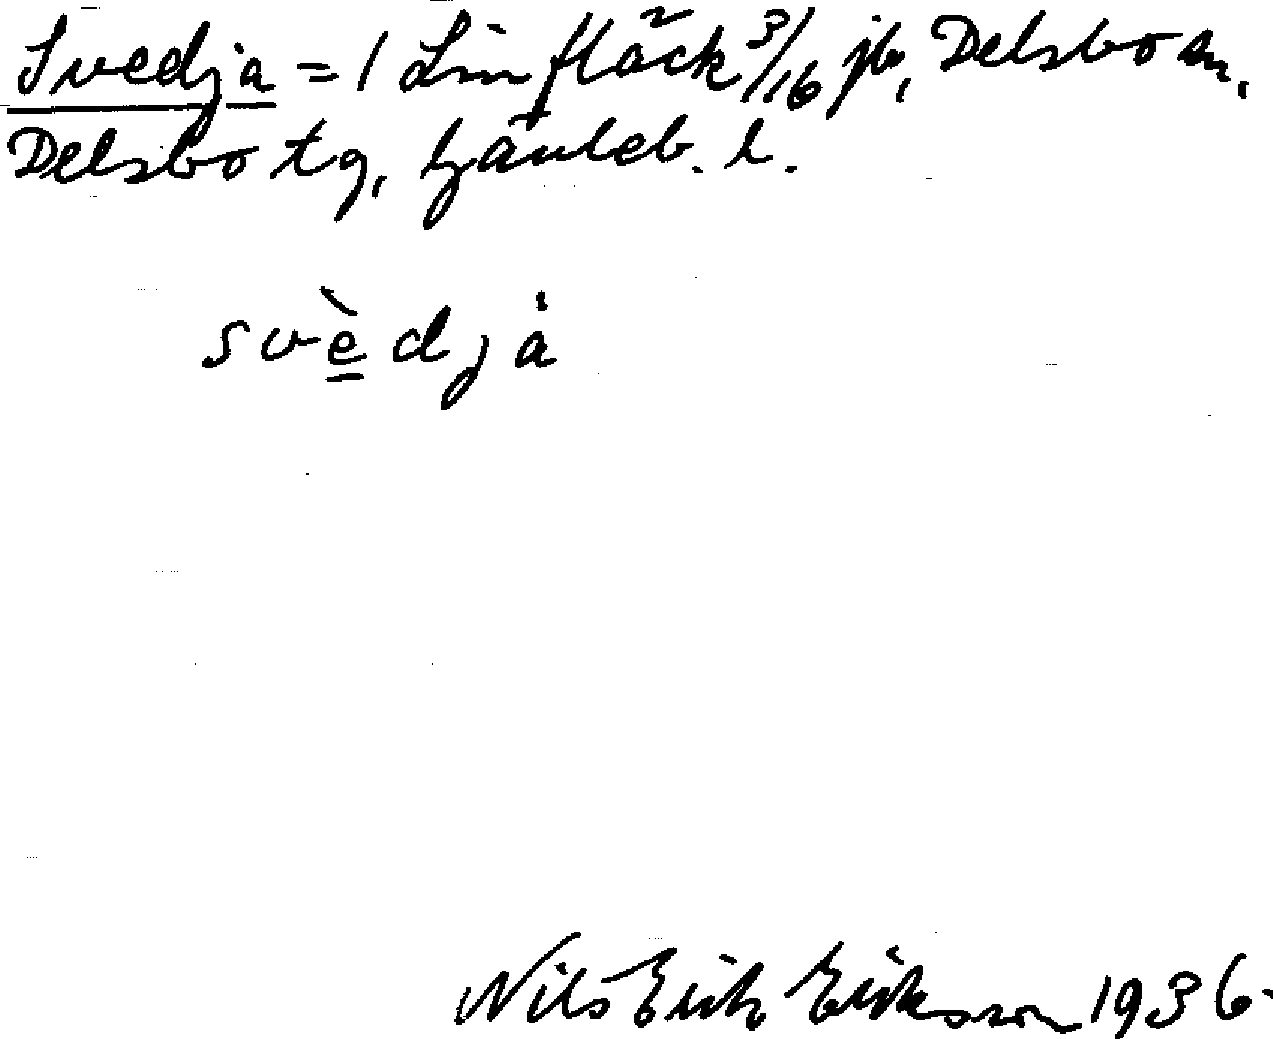 Svedja = 1 Linfläck 3/16 jb, Delsbo sn,
Delsbo tg, Gävleb. l.
svèdjȧ
Nils Erik Eriksson 1936.